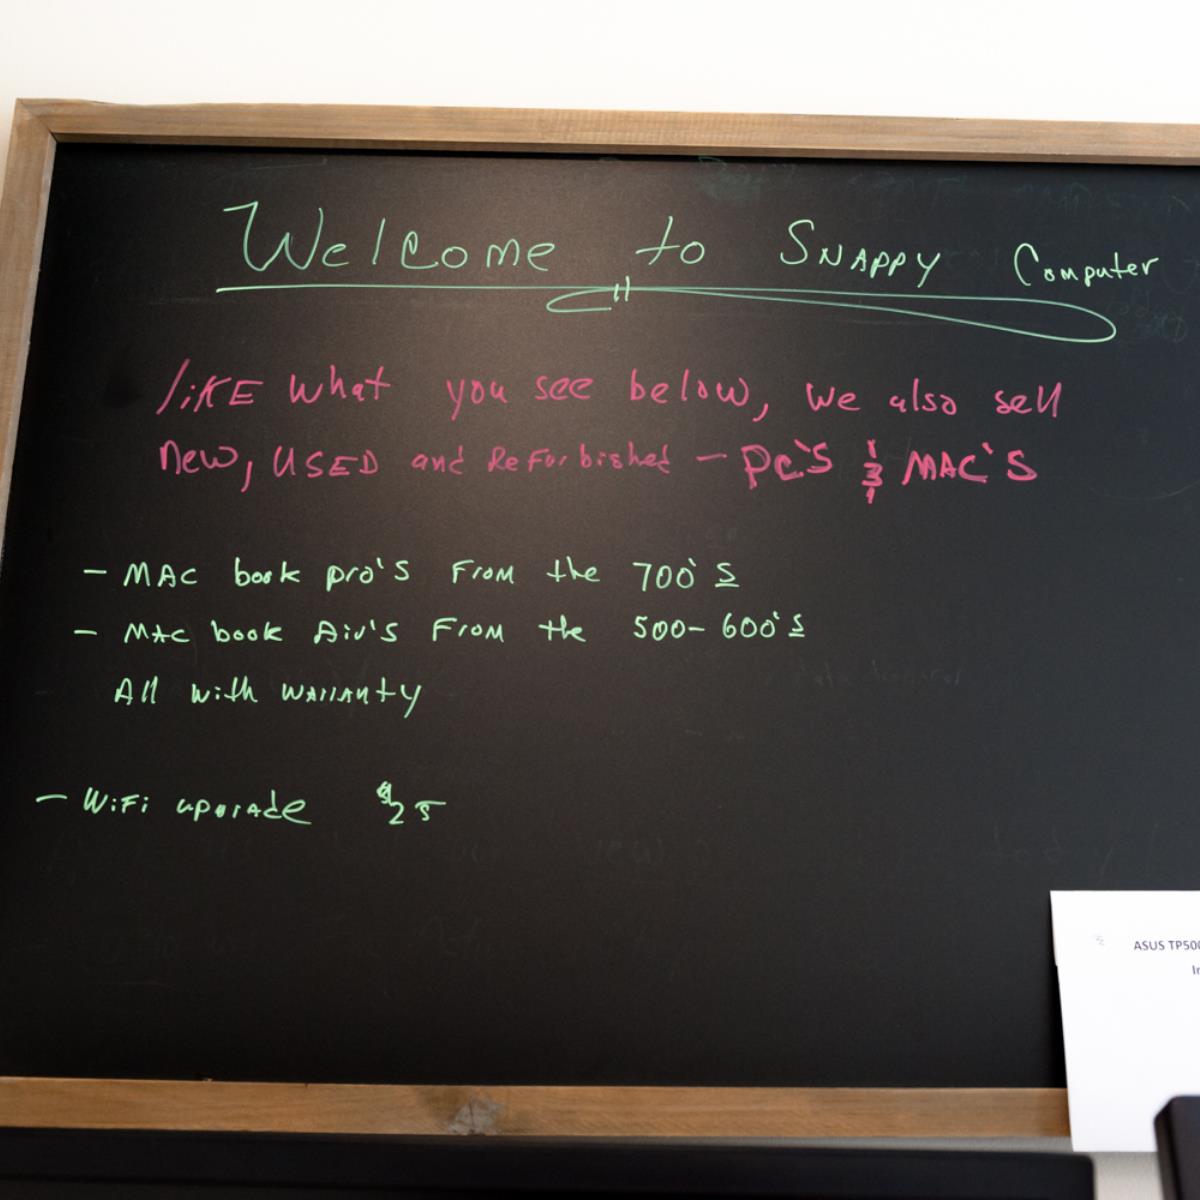 Welcome to Snappy Computer
like what you see below, we also sell
new, USED and Refurbished - PC'S & MAC'S
- MAC book pro's From the 700's
- Mac book Air's From the 500-600's
All with warranty
- WiFi upgrade $25
ASUS TP500